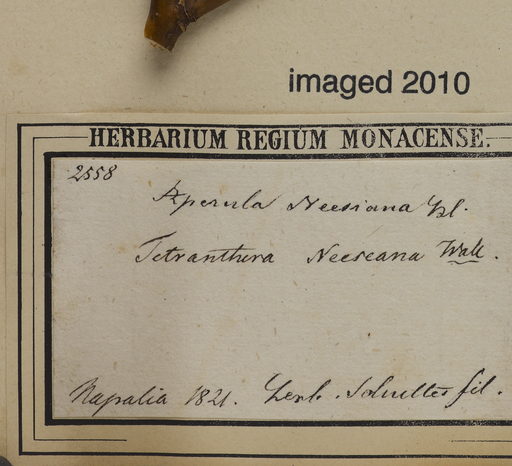 imaged 2010
HERBARIUM REGIUM MONACENSE.
2558
Aperula Neesiana Bl.
Tetranthera Neeseana Wall.
Napalia 1821. Herb. Schultes fil.